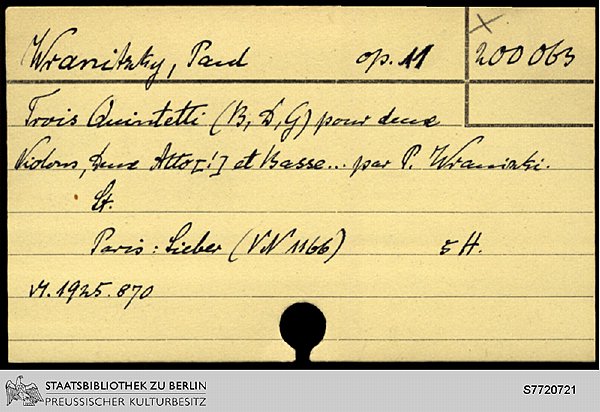 Wranitzky, Paul op. 11 200063
Trois Quintetti (B, D, G) pour deux
Violons, Deux Alto[!] et Basse... par P. Wranizki.
St.
Paris: Sieber (VN 1166) 5 H.
M.1925.870
STAATSBIBLIOTHEK ZU BERLIN
PREUSSISCHER KULTURBESITZ
S7720721